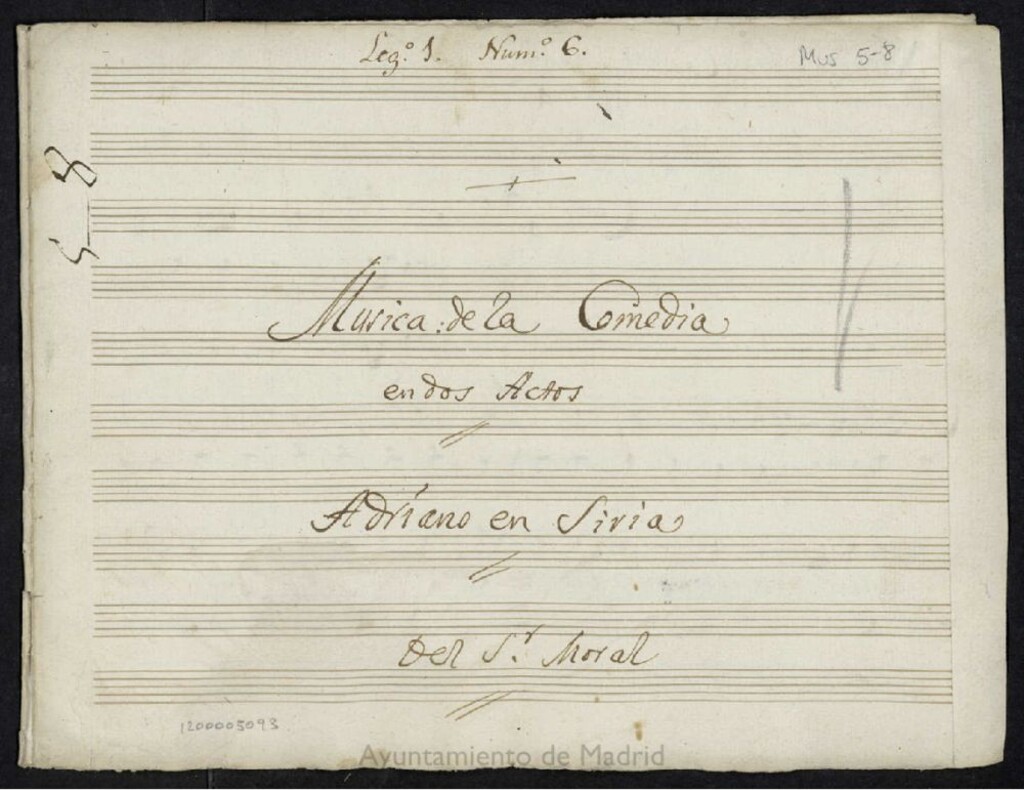 Leg.º 1. Num.º 6.
Mus 5-8
5-8
Musica de la Comedia
en dos Actos
Adriano en Siria
Del S.r Moral
1200005093
Ayuntamiento de Madrid